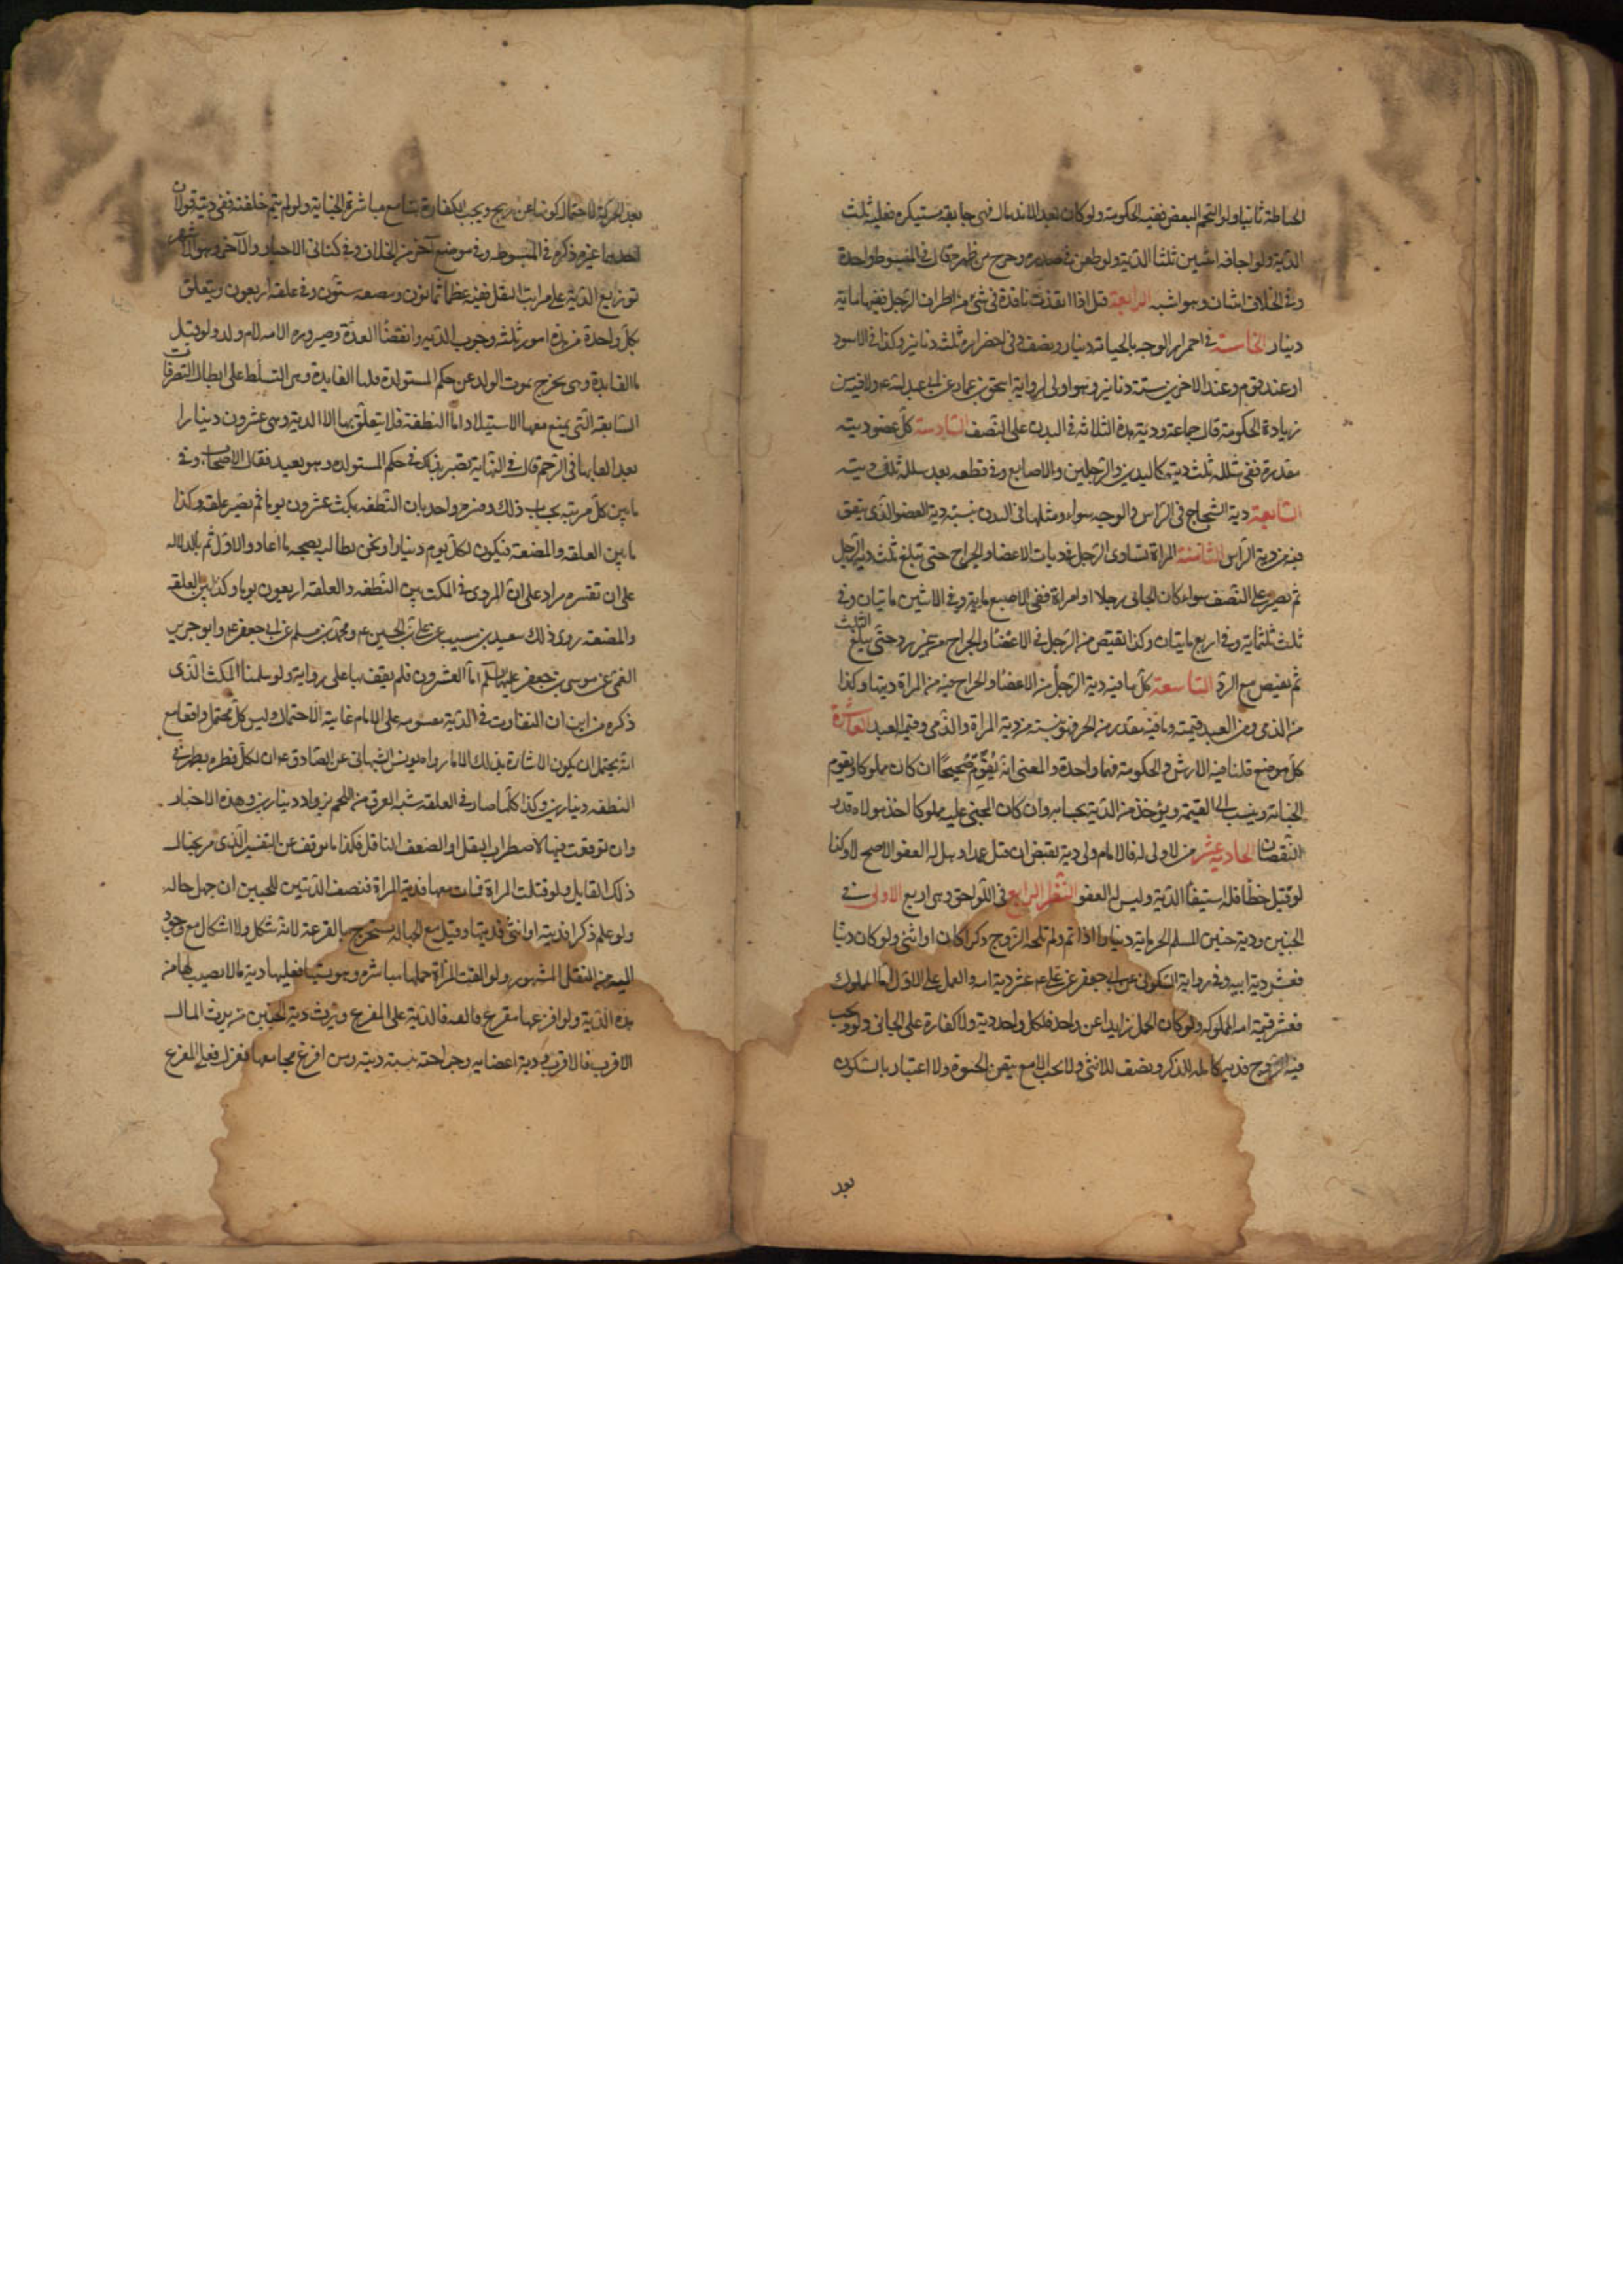 الخياطة ثانيا ولو التحم البعض ففيه الحكومة ولو كان بعد الاندمال فهى جايفة مستنكرة فعليه ثلث
الدية ولو اجافه اثنين ثلثا الدية ولو طعن فى صدره وخرج من ظهره قال فى المبسوط واحدة
وفى الخلاف اثنتان وهو اشبه الرابعة قيل اذا انفذت نافذة فى شئ من اطراف الرجل ففيها ماية
دينار الخامسة فى احمرار الوجه بالجناية دينار ونصف وفى اخضراره ثلثة دنانير وكذا فى الاسود
او عند قوم وعند الاخرين ستة دنانير وهو اولى لرواية اسحق بن عمار عن ابى عبد الله ع ولا فيه من
زيادة الحكومة قال جماعة ودية هذه الثلاثة فى البدن على النصف السادسة كل عضو ديته
مقدرة ففى شلله ثلثا ديته كاليدين والرجلين والاصابع وفى قطعه بعد شلله ثلث ديته
السابعة دية الشجاج فى الراس والوجه سواء ومثلها فى البدن بنسبة دية العضو الذى يتفق
فيه من دية الراس الثامنة المراة تساوى الرجل فى ديات الاعضا والجراح حتى تبلغ ثلث دية الرجل
ثم تصير على النصف سواء كان الجانى رجلا او امراة ففى الاصبع ماية وفى الاثنين مايتان وفى
ثلث ثلثماية وفى اربع مايتان وكذا يقتص من الرجل فى الاعضا والجراح من غير رد حتى يبلغ الثلث
ثم يقتص مع الرد التاسعة كل ما فيه دية الرجل من الاعضا والجراح فيه من المراة ديتها وكذا
من الذمى ومن العبد قيمته وما فيه مقدر من الحر فهو بنسبته من دية المراة والذمى وقيمة العبد العاشرة
كل موضع قلنا فيه الارش والحكومة فهما واحدة والمعنى انه يقوم صحيحا ان كان مملوكا ويقوم
الجناية وينسب الى القيمة ويؤخذ من الدية بحسابه وان كان المجنى عليه مملوكا اخذ مولاه قدر
النقصان الحادية عشر من لا ولى له فالامام ولى ديته يقتص ان قتل عمدا وهل له العفو الاصح لا وكذا
لو قتل خطأ فله استيفا الدية وليس له العفو النظر الرابع فى اللواحق وهى اربع الاولى فى
الجنين ودية جنين المسلم الحر ماية دينار اذا تم ولم تلجه الروح ذكرا كان او انثى ولو كان ذميا
فعشر دية ابيه وفى رواية السكونى عن ابى جعفر عن على ع عشر دية امه والعمل على الاول اما المملوك
فعشر قيمة امه المملوكة ولو كان الحمل زايدا عن واحد فلكل واحد دية ولا كفارة على الجانى ولو ولجت
فيه الروح فدية كاملة للذكر ونصف للانثى ولا تجب الا مع تيقن الحيوة ولا اعتبار بالسكون
بعد
بعد الحركة لاحتمال كونها عن ريح وتجب الكفارة هنا مع مباشرة الجناية ولو لم يتم خلقته ففى ديته قولان
احدهما غرة ذكره فى المبسوط وفى موضع آخر من الخلاف وفى كتابى الاخبار والآخر وهو الاشهر
توزيع الدية على مراتب النقل ففيه عظما ثمانون ومضغة ستون وفى علقة اربعون ويتعلق
بكل واحدة من هذه امور ثلثة وجوب الدية وانقضا العدة وصيرورة الامة ام ولد ولو قيل
ما الفايدة وهى تخرج بموت الولد عن حكم المستولدة قلنا الفايدة هى التسلط على ابطال التصرفات
السابقة التى يمنع معها الاستيلاد اما النطفة فلا يتعلق بها الا الدية وهى عشرون دينارا
بعد القايها فى الرحم قال فى النهاية تصير بذلك فى حكم المستولدة وهو بعيد فقال الاصحاب وفى
ما بين كل مرتبة بحساب ذلك وفسره واحد بان النطفة تمكث عشرون يوما ثم تصير علقة وكذا
ما بين العلقة والمضغة فيكون لكل يوم دينارا ونحن نطالبه بصحة ما ادعاه والاول ثم بالدلالة
على ان تفسيره مراد على ان المروى فى المكث بين النطفة والعلقة اربعون يوما وكذا بين العلقة
والمضغة روى ذلك سعيد بن مسيب عن على بن الحسين ع ومحمد بن مسلم عن ابى جعفر ع وابو جرير
القمى عن موسى بن جعفر عليهما السلم اما العشرون فلم نقف بها على رواية ولو سلمنا المكث الذى
ذكره من اين ان التفاوت فى الدية مقسومة على الايام غاية الاحتمال وليس كل محتمل واقعا مع
انه يحتمل ان يكون الاشارة بذلك الى ما رواه يونس الشيبانى عن الصادق ع ان لكل قطرة تظهر فى
النطفة دينارين وكذا كلما صار فى العلقة شبه العرق من اللحم يزداد دينارين وهذه الاخبار
وان توقفت فيها لاضطراب النقل او لضعف الناقل فكذا ما توقف عن التفسير الذى مر بخيال
ذلك القايل ولو قتلت المراة فمات معها فدية المراة فنصف الديتين للجنين ان جهل حاله
ولو علم ذكرا فديته او انثى فديتها وقيل مع الجهالة تستخرج بالقرعة لانه مشكل ولا اشكال مع وجود
اليه من النقل المشهور ولو القت المراة حملها مباشرة وتسبيبا فعليها دية ما لا نصيب لها من
هذه الدية ولو افزعها مفزع فالقته فالدية على المفزع ويرث دية الجنين من يرث المال
الاقرب فالاقرب ودية اعضايه وجراحته بنسبة ديته ومن افزع مجامعا فعزل فعلى المفزع